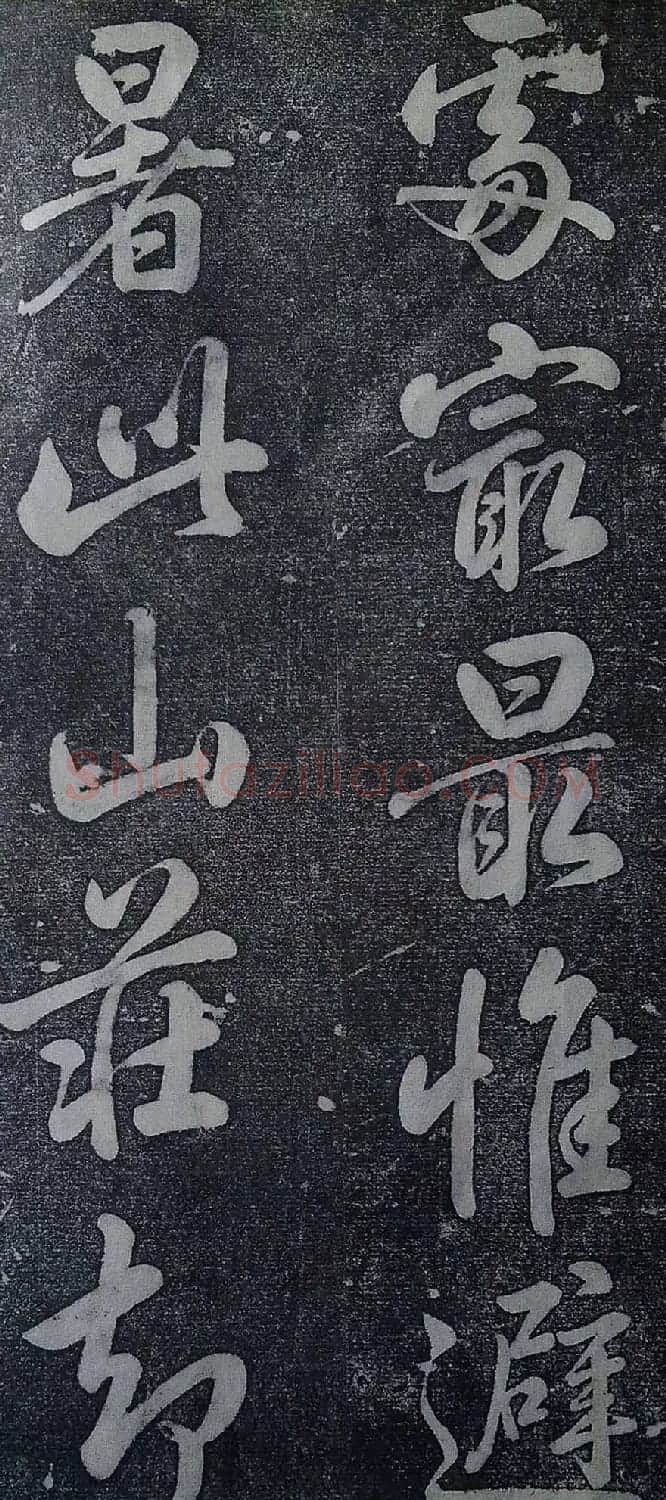 㝡最惟避
暑此山莊却
Shufaziliao.COM